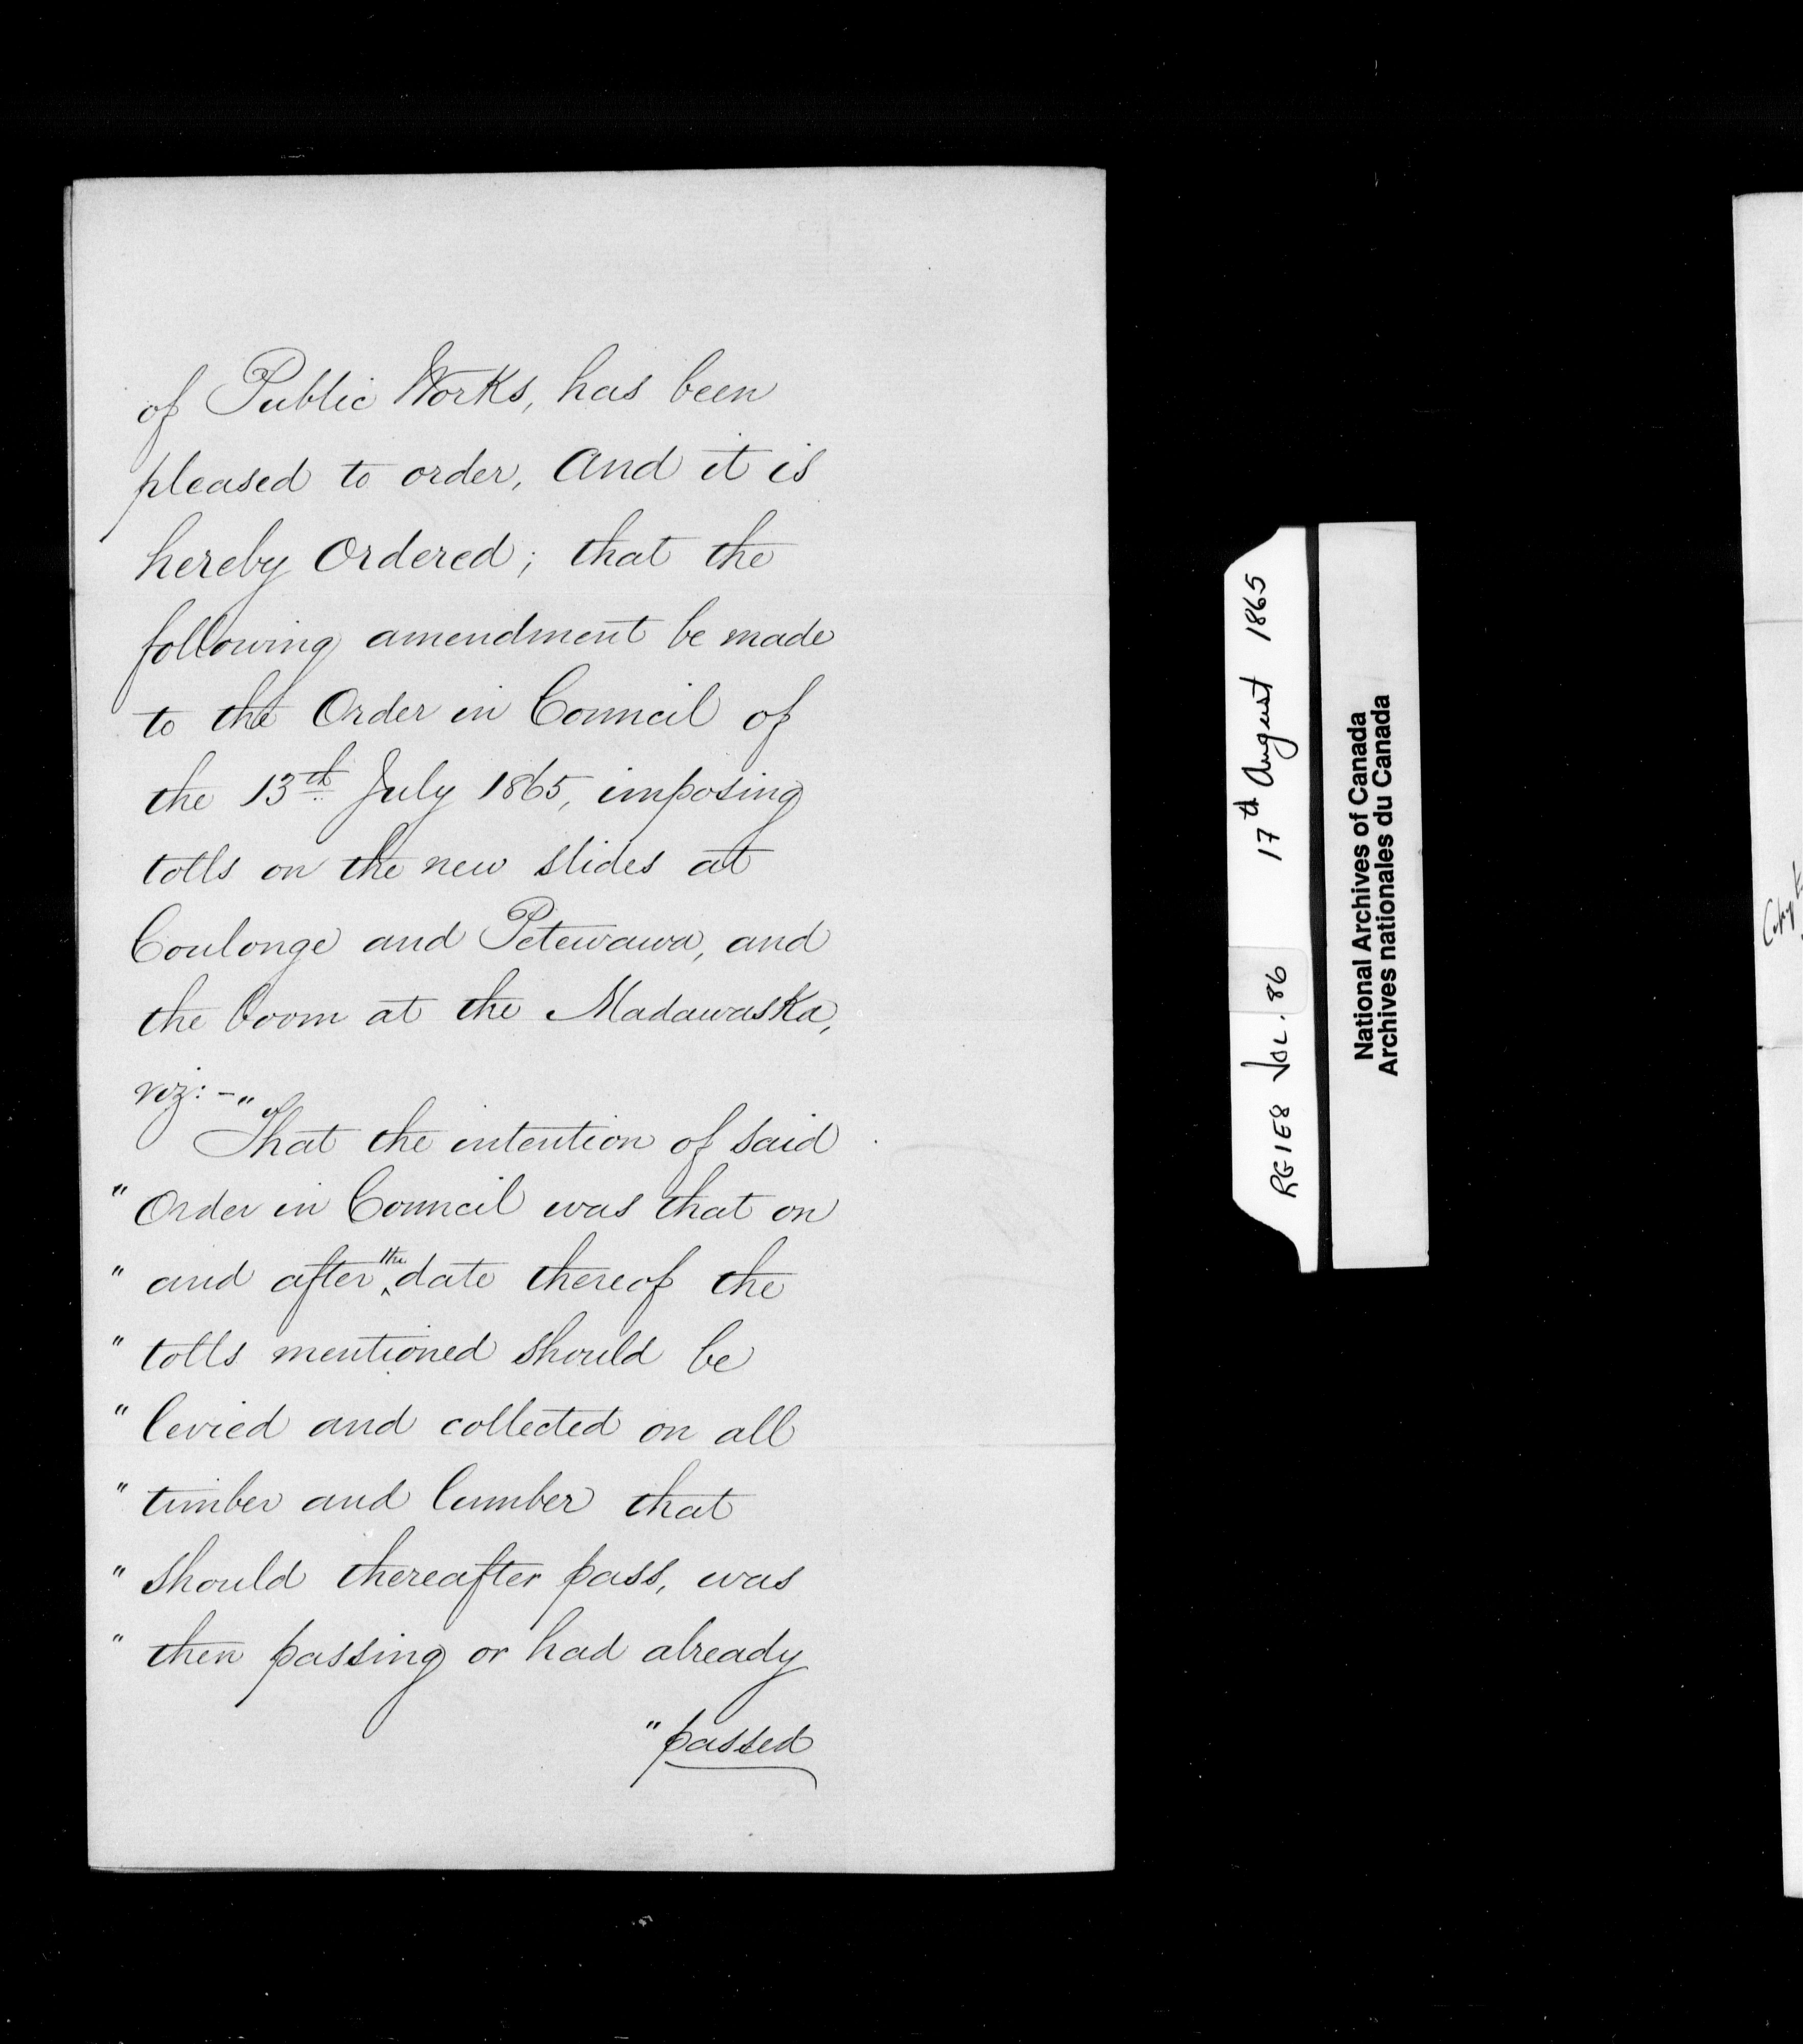 of Public Works, has been
pleased to order, And it is
hereby Ordered; that the
following amendment be made
to the Order in Council of
the 13th July 1865, imposing
tolls on the new slides at
Coulonge and Petewawa, and
the boom at the Madawaska,
viz: - "
That the intention of said
" Order in Council was that on
" and after the date thereof the
" tolls mentioned should be
" levied and collected on all
" timber and lumber that
" should thereafter pass, was
" then passing or had already
" passed
RG1E8 VOL. 86 17th August 1865
National Archives of Canada
Archives nationales du Canada